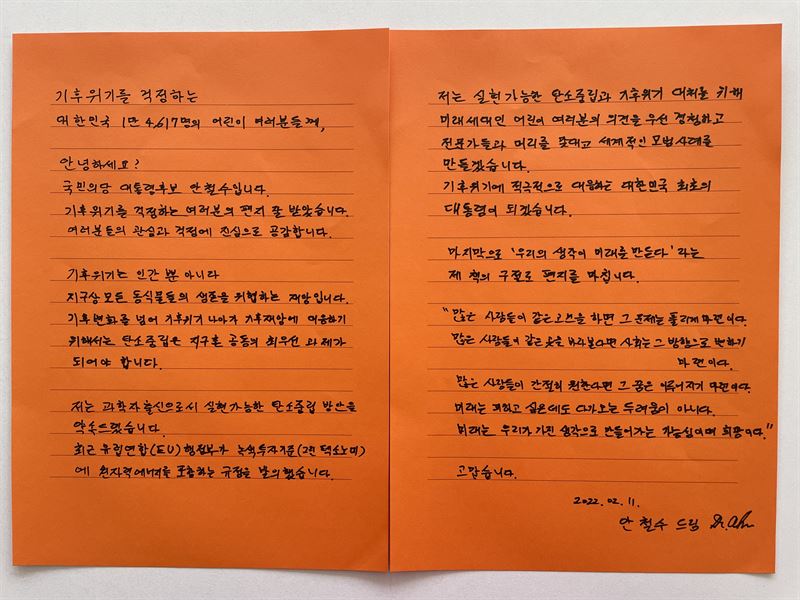 기후위기를 걱정하는
대한민국 1만 4,617명의 어린이 여러분들께,
안녕하세요?
국민의당 대통령후보 안철수입니다.
기후위기를 걱정하는 여러분의 편지 잘 받았습니다.
여러분들의 관심과 걱정에 진심으로 공감합니다.
기후위기는 인간 뿐 아니라
지구상 모든 동식물들의 생존을 위협하는 재앙입니다.
기후변화를 넘어 기후위기 나아가 기후재앙에 대응하기
위해서는 탄소중립은 지구촌 공동의 최우선 과제가
되어야 합니다.
저는 과학자출신으로서 실현가능한 탄소중립 방안을
약속드렸습니다.
최근 유럽연합(EU)행정부가 녹색투자기준(그린 택소노미)
에 원자력에너지를 포함하는 규정을 발의했습니다.
저는 실현가능한 탄소중립과 기후위기 대처를 위해
미래세대인 어린이 여러분의 의견을 우선 경청하고
전문가들과 머리를 맞대고 세계적인 모범사례를
만들겠습니다.
기후위기에 적극적으로 대응하는 대한민국 최초의
대통령이 되겠습니다.
마지막으로 '우리의 생각이 미래를 만든다' 라는
제 책의 구절로 편지를 마칩니다.
"많은 사람들이 같은 고민을 하면 그 문제는 풀리게 마련이다.
많은 사람들이 같은 곳을 바라본다면 사회는 그 방향으로 변하기
마련이다.
많은 사람들이 간절히 원한다면 그 꿈은 이루어지기 마련이다.
미래는 피하고 싶은데도 다가오는 두려움이 아니다.
미래는 우리가 가진 생각으로 만들어가는 가능성이며 희망이다."
고맙습니다.
2022. 02. 11.
안철수 드림